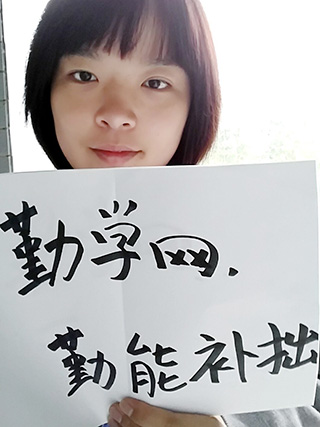 勤学网.
勤能补拙